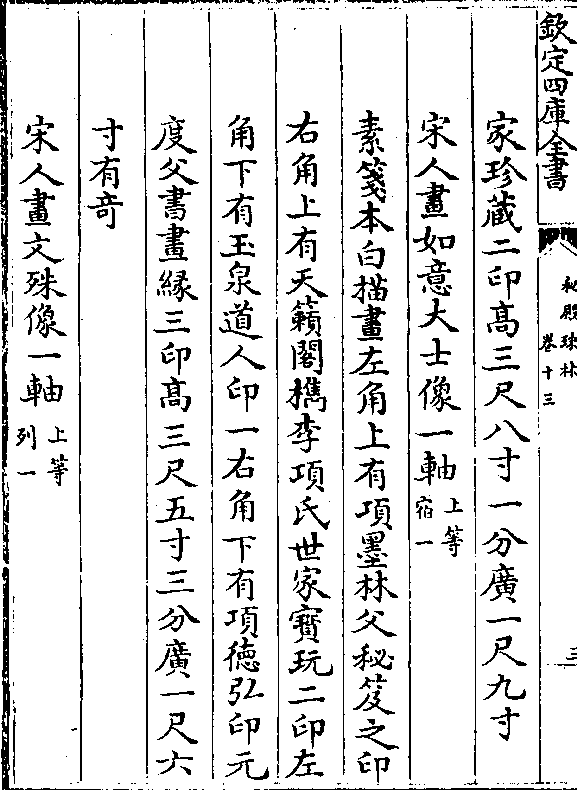 欽定四庫全書
秘殿珠林
卷十三
三
家珍藏二印高三尺八寸一分廣一尺九寸
宋人畫如意大士像一軸上等宿一
素箋本白描畫左角上有項墨林父秘笈之印
右角上有天籟閣檇李項氏世家寶玩二印左
角下有玉泉道人印一右角下有項德弘印元
度父書畫緣三印高三尺五寸三分廣一尺六
寸有奇
宋人畫文殊像一軸上等列一